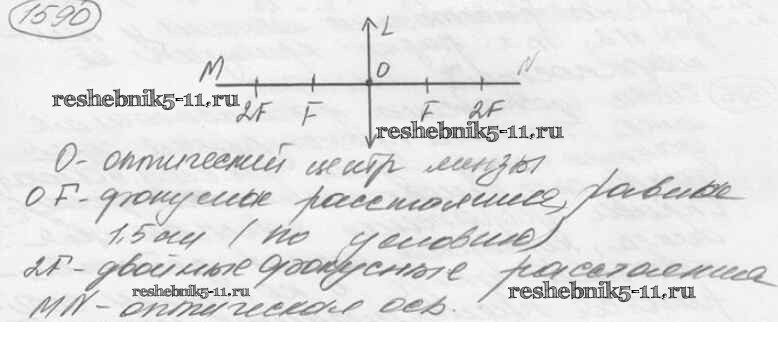 1590
L
M O N
2F F F 2F
reshebnik5-11.ru
reshebnik5-11.ru
O - оптический центр линзы
OF - фокусные расстояния, равные
1,5 см (по условию)
2F - двойные фокусные расстояния
MN - оптическая ось.
reshebnik5-11.ru
reshebnik5-11.ru